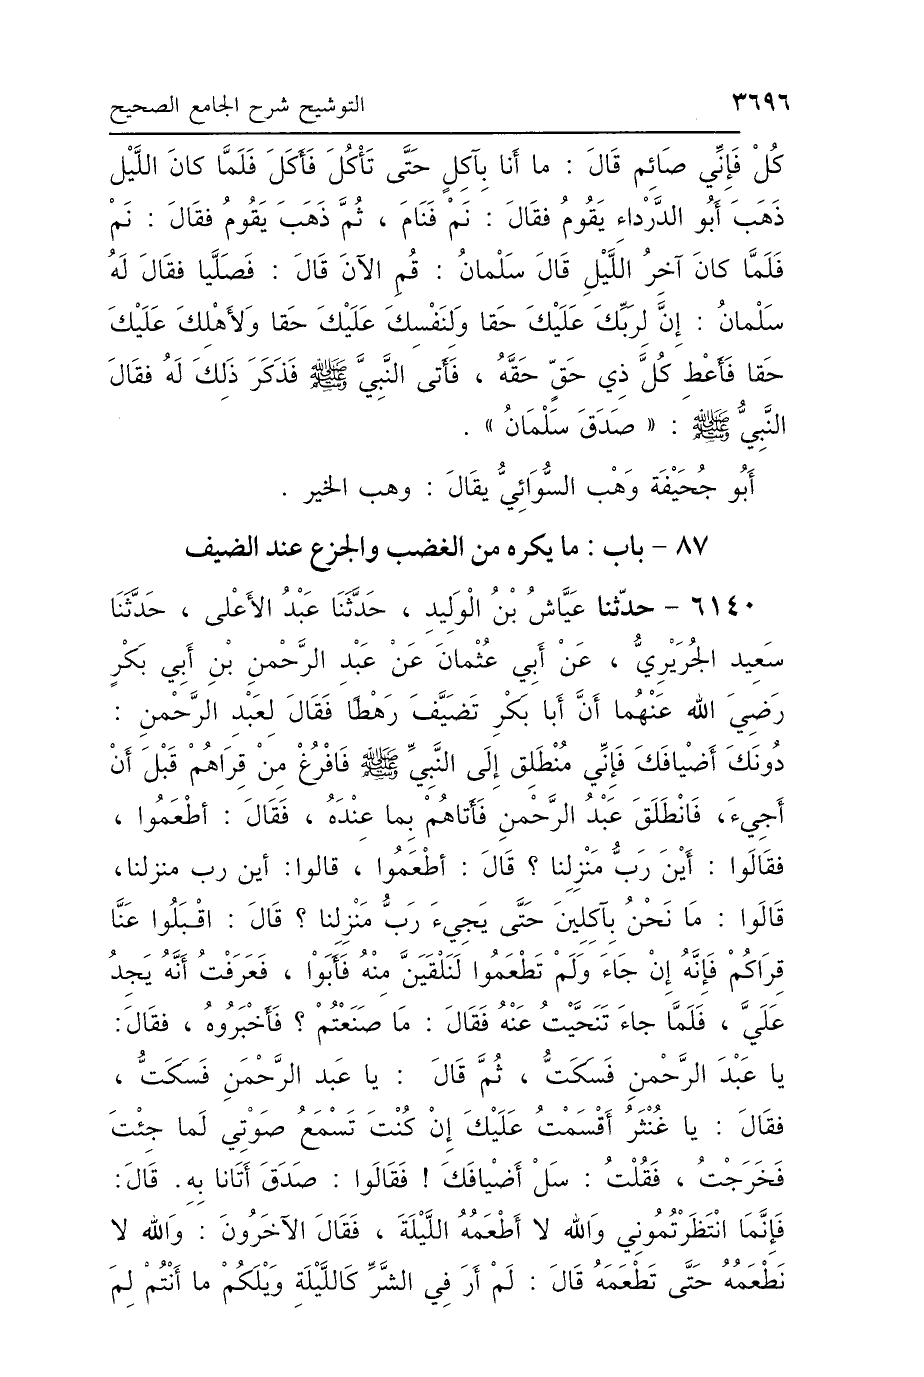 ٣٦٩٦ التوشيح شرح الجامع الصحيح
كُلْ فَإِنِّي صَائِم قَالَ : ما أَنا بِآكلٍ حَتَّى تَأْكُلَ فَأَكَلَ فَلَمَّا كانَ اللَّيْل
ذَهَبَ أَبُو الدَّرْداءِ يَقُومُ فقالَ : نَمْ فَنَامَ ، ثُمَّ ذَهَبَ يَقُومُ فقالَ : نَمْ
فَلَمَّا كانَ آخرُ اللَّيْلِ قالَ سَلْمانُ : قُمِ الآنَ قالَ : فَصَلَّيا فقالَ لَهُ
سَلْمانُ : إِنَّ لِرَبِّكَ عَلَيْكَ حَقا وَلِنَفْسِكَ عَلَيْكَ حَقا وَلأَهْلِكَ عَلَيْكَ
حَقا فَأَعْطِ كُلَّ ذي حَقٍّ حَقَّهُ ، فَأَتى النَّبِيَّ ﷺ فَذَكَرَ ذَلِكَ لَهُ فقالَ
النَّبِيُّ ﷺ : « صَدَقَ سَلْمَانُ » .
أَبُو جُحَيْفَةَ وَهْب السُّوَائِيُّ يقَالَ : وهب الخير .
٨٧ - باب : ما يكره من الغضب والجزع عند الضيف
٦١٤٠ - حدّثنا عَيَّاشُ بْنُ الْوَلِيدِ ، حَدَّثَنَا عَبْدُ الأَعْلى ، حَدَّثَنَا
سَعِيد الجُرَيْرِيُّ ، عَنْ أَبي عثْمانَ عَنْ عَبْدِ الرَّحْمنِ بْنِ أَبي بَكْرٍ
رَضِيَ الله عَنْهُما أَنَّ أَبا بَكْرٍ تَضَيَّفَ رَهْطًا فَقَالَ لِعَبْدِ الرَّحْمنِ :
دُونَكَ أَضْيافَكَ فَإِنِّي مُنْطَلِق إِلَى النَّبِيِّ ﷺ فَافْرُغْ مِنْ قِرَاهُمْ قَبْلَ أَنْ
أَجِيءَ، فَانْطَلَقَ عَبْدُ الرَّحْمنِ فَأَتاهُمْ بِما عِنْدَهُ ، فَقَالَ : أطْعَمُوا ،
فقَالَوا : أَيْنَ رَبُّ مَنْزِلِنا ؟ قَالَ : أطْعَمُوا ، قالوا: أين رب منزلنا،
قَالَوا : مَا نَحْنُ بِآكِلِينَ حَتَّى يَجِيءَ رَبُّ مَنْزِلِنا ؟ قَالَ : اقْبَلُوا عَنَّا
قِرَاكُمْ فَإِنَّهُ إِنْ جَاءَ وَلَمْ تَطْعَمُوا لَنَلْقَيَنَّ مِنْهُ فَأَبَوْا ، فَعَرَفْتُ أَنَّهُ يَجِدُ
عَلَيَّ ، فَلَمَّا جاءَ تَنَحَّيْتُ عَنْهُ فَقَالَ : مَا صَنَعْتُمْ ؟ فَأَخْبَرُوهُ ، فقالَ:
يا عَبْدَ الرَّحْمنِ فَسكَتُّ ، ثُمَّ قَالَ : يا عَبد الرَّحْمنِ فَسَكَتُّ ،
فقَالَ : يا غُنْثَرُ أَقْسَمْتُ عَلَيْكَ إِنْ كُنْتَ تَسْمَعُ صَوْتِي لَما جِئْتَ
فَخَرَجْتُ ، فَقُلْتُ : سَلْ أَضْيافَكَ ! فَقَالُوا : صَدَقَ أَتَانا بِهِ. قَالَ:
فَإِنَّمَا انْتَظَرْتُمُوني وَالله لا أَطْعَمُهُ اللَّيْلَةَ ، فَقَالَ الآخَرُونَ : وَالله لا
نَطْعَمُهُ حَتَّى تَطْعَمَهُ قَالَ : لَمْ أَرَ فِي الشَّرِّ كَاللَّيْلَةِ وَيْلَكُمْ ما أَنْتُمْ لِمَ